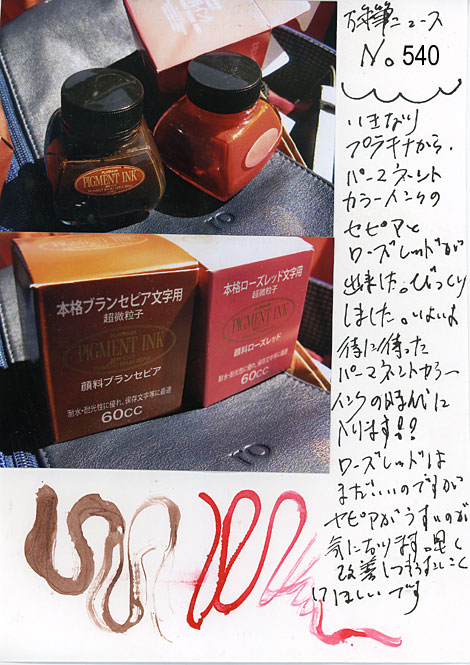 万年筆ニュース
No 540
いきなり
プラチナから、
パーマネント
カラーインクの
セピアと
ローズレッドが
出来した。びっくり
しました。いよいよ
待に待った
パーマネントカラー
インクの時代に
入ります!!
ローズレッドは
まだいいのですが
セピアがうすいのが
気になります。早く
改善して
ほしいです
PIGMENT INK
本格ブランセピア文字用
超微粒子
PIGMENT INK
顔料ブランセピア
耐水・耐光性に優れ、保存文字等に最適
60cc
本格ローズレッド文字用
超微粒子
PIGMENT INK
顔料ローズレッド
耐水・耐光性に優れ、保存文字等に最適
60cc